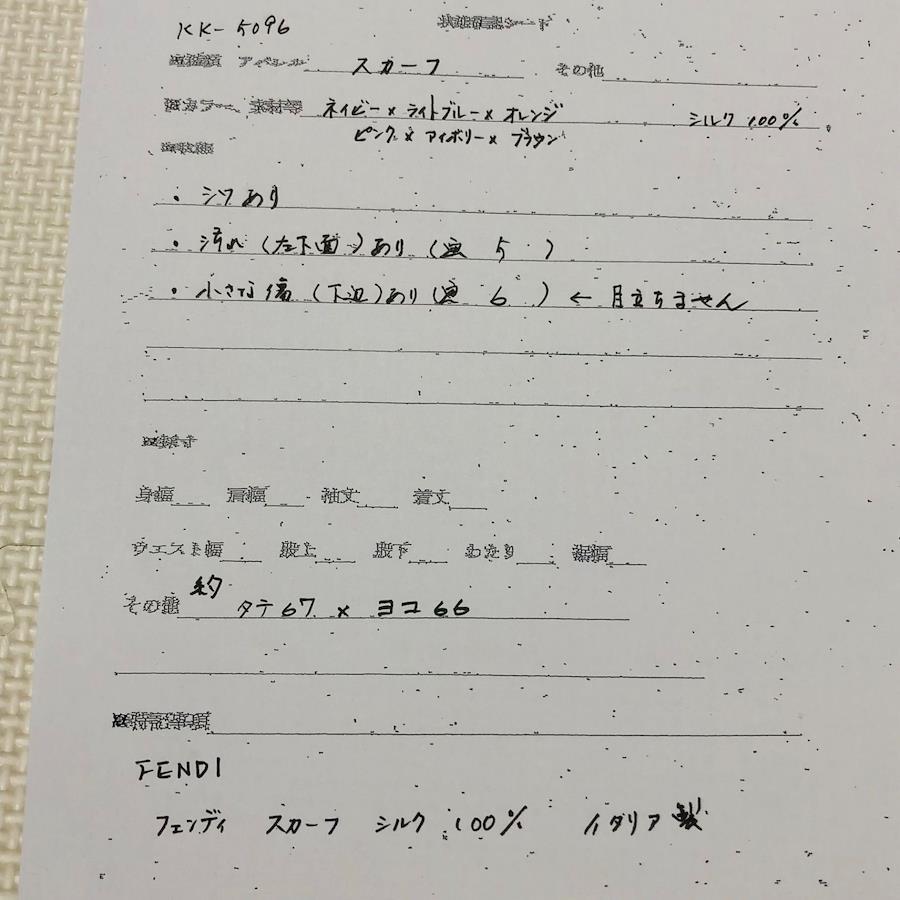 KK-5096
状態確認シート
アパレル スカーフ その他
カラー、素材等 ネイビー×ライトブルー×オレンジ シルク100%
ピンク×アイボリー×ブラウン
状態
・シワあり
・汚れ(左下面)あり(画 5 )
・小さな傷(下辺)あり(画 6 )← 目立ちません
採寸
身幅 肩幅 袖丈 着丈
ウエスト幅 股上 股下 わたり 裾幅
その他 約 タテ67×ヨコ66
特記事項
FENDI
フェンディ スカーフ シルク 100% イタリア製